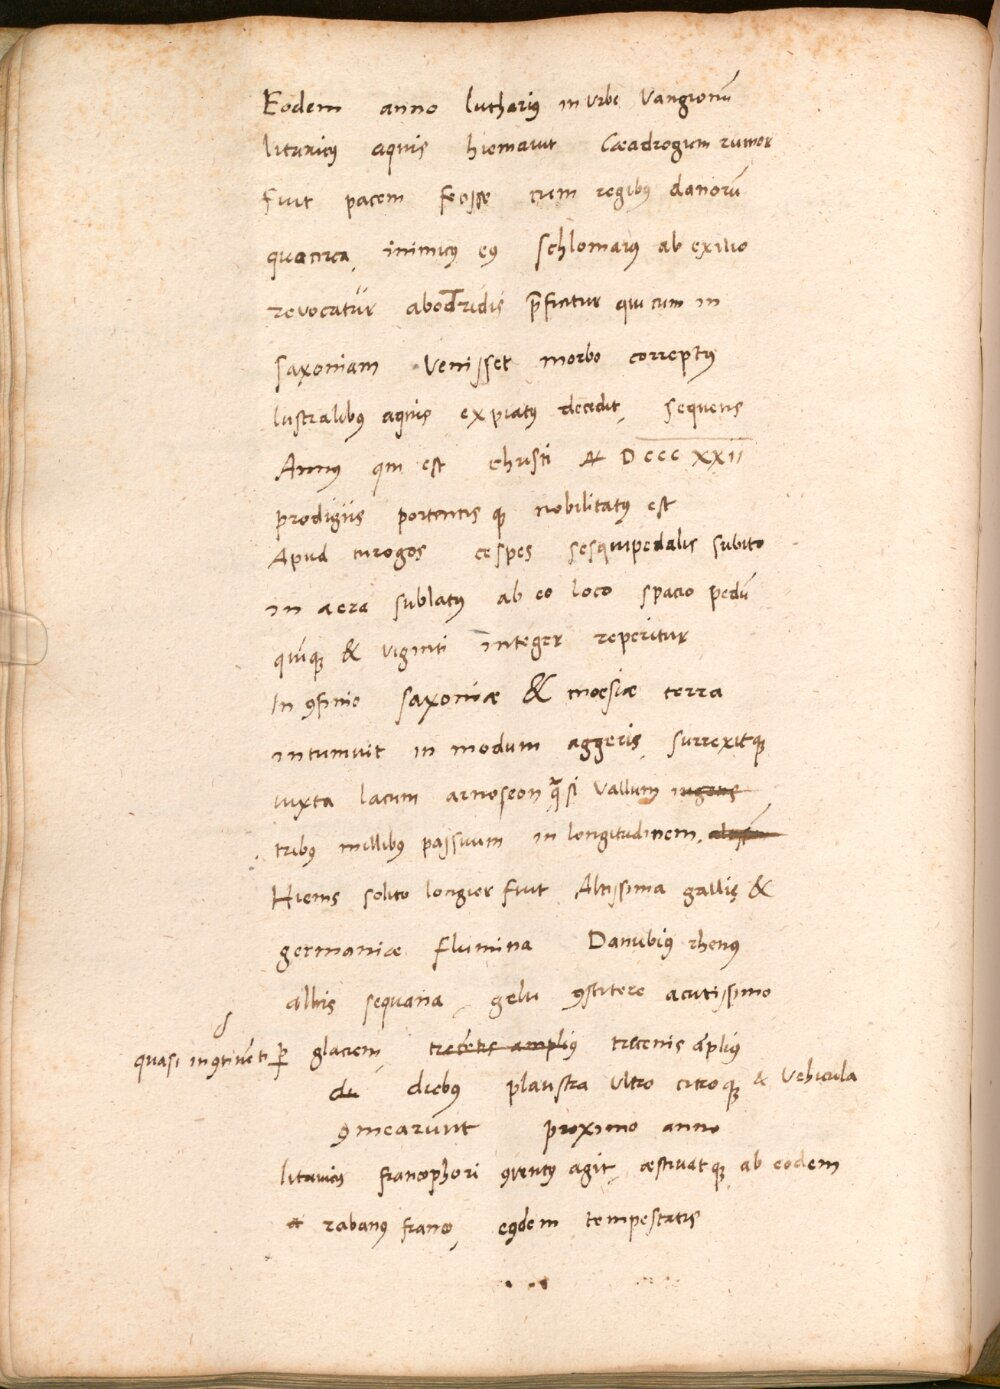 Eodem anno lutharius in urbe Vangionū
litauicus aquis hiemauit Caeadrogum rumor
fuit pacem fecisse cum regibus danorū
quacirca, inimicus eius schlomarus ab exilio
revocatur abodtridis p̄ficitur qui cum in
saxoniam Venisset morbo correptus
lustralibus aquis expiatus decedit, sequens
Annus qui est christi A DCCCXXII
prodigiis portentisque nobilitatus est
Apud turogos cespes sesquipedalis subito
in aera sublatus ab eo loco spacio pedū
quinque & viginti integer reperitur
In ꝯfinio saxoniæ & moesiæ terra
intumuit in modum aggeris, surrexitque
iuxta lacum arnoseon quasi vallum ingens
tribus millibus passuum in longitudinem.
Hiems solito longior fuit Altissima galliæ &
germaniæ flumina Danubius rhenus
albis sequana, gelu ꝯstitere acutissimo
quasi inꝯtinēti ꝑ glaciem, trecētis amplius tricenis āplius
di diebus plaustra ultro citroque & vehicula
ꝯmearunt proximo anno
litauicus francophori ꝯventus agit, æstiuatque ab eodem
A rabanus franco, eiusdem tempestatis